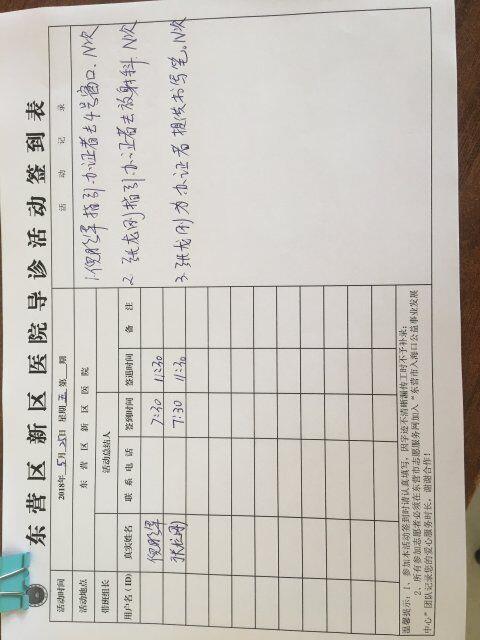 东营区新区医院导诊活动签到表
活动时间 2018年 5月 25日 星期 五 第 期 活动记录
活动地点 东营区新区医院
带班组长 活动总结人
用户名（ID） 真实姓名 联系电话 签到时间 签退时间 备注
7:30 11:30
张龙刚 7:30 11:30
1. 指引办证者去4号窗口. N次
2. 张龙刚指引办证者去放射科. N次
3. 张龙刚为办证者提供书写笔。N次
温馨提示：1、参加本活动签到时请认真填写，因字迹不清晰漏传工时不予补录；
2、所有参加志愿者必须在东营市志愿服务网加入“东营市入海口公益事业发展
中心”团队记录您的爱心服务时长，谢谢合作！